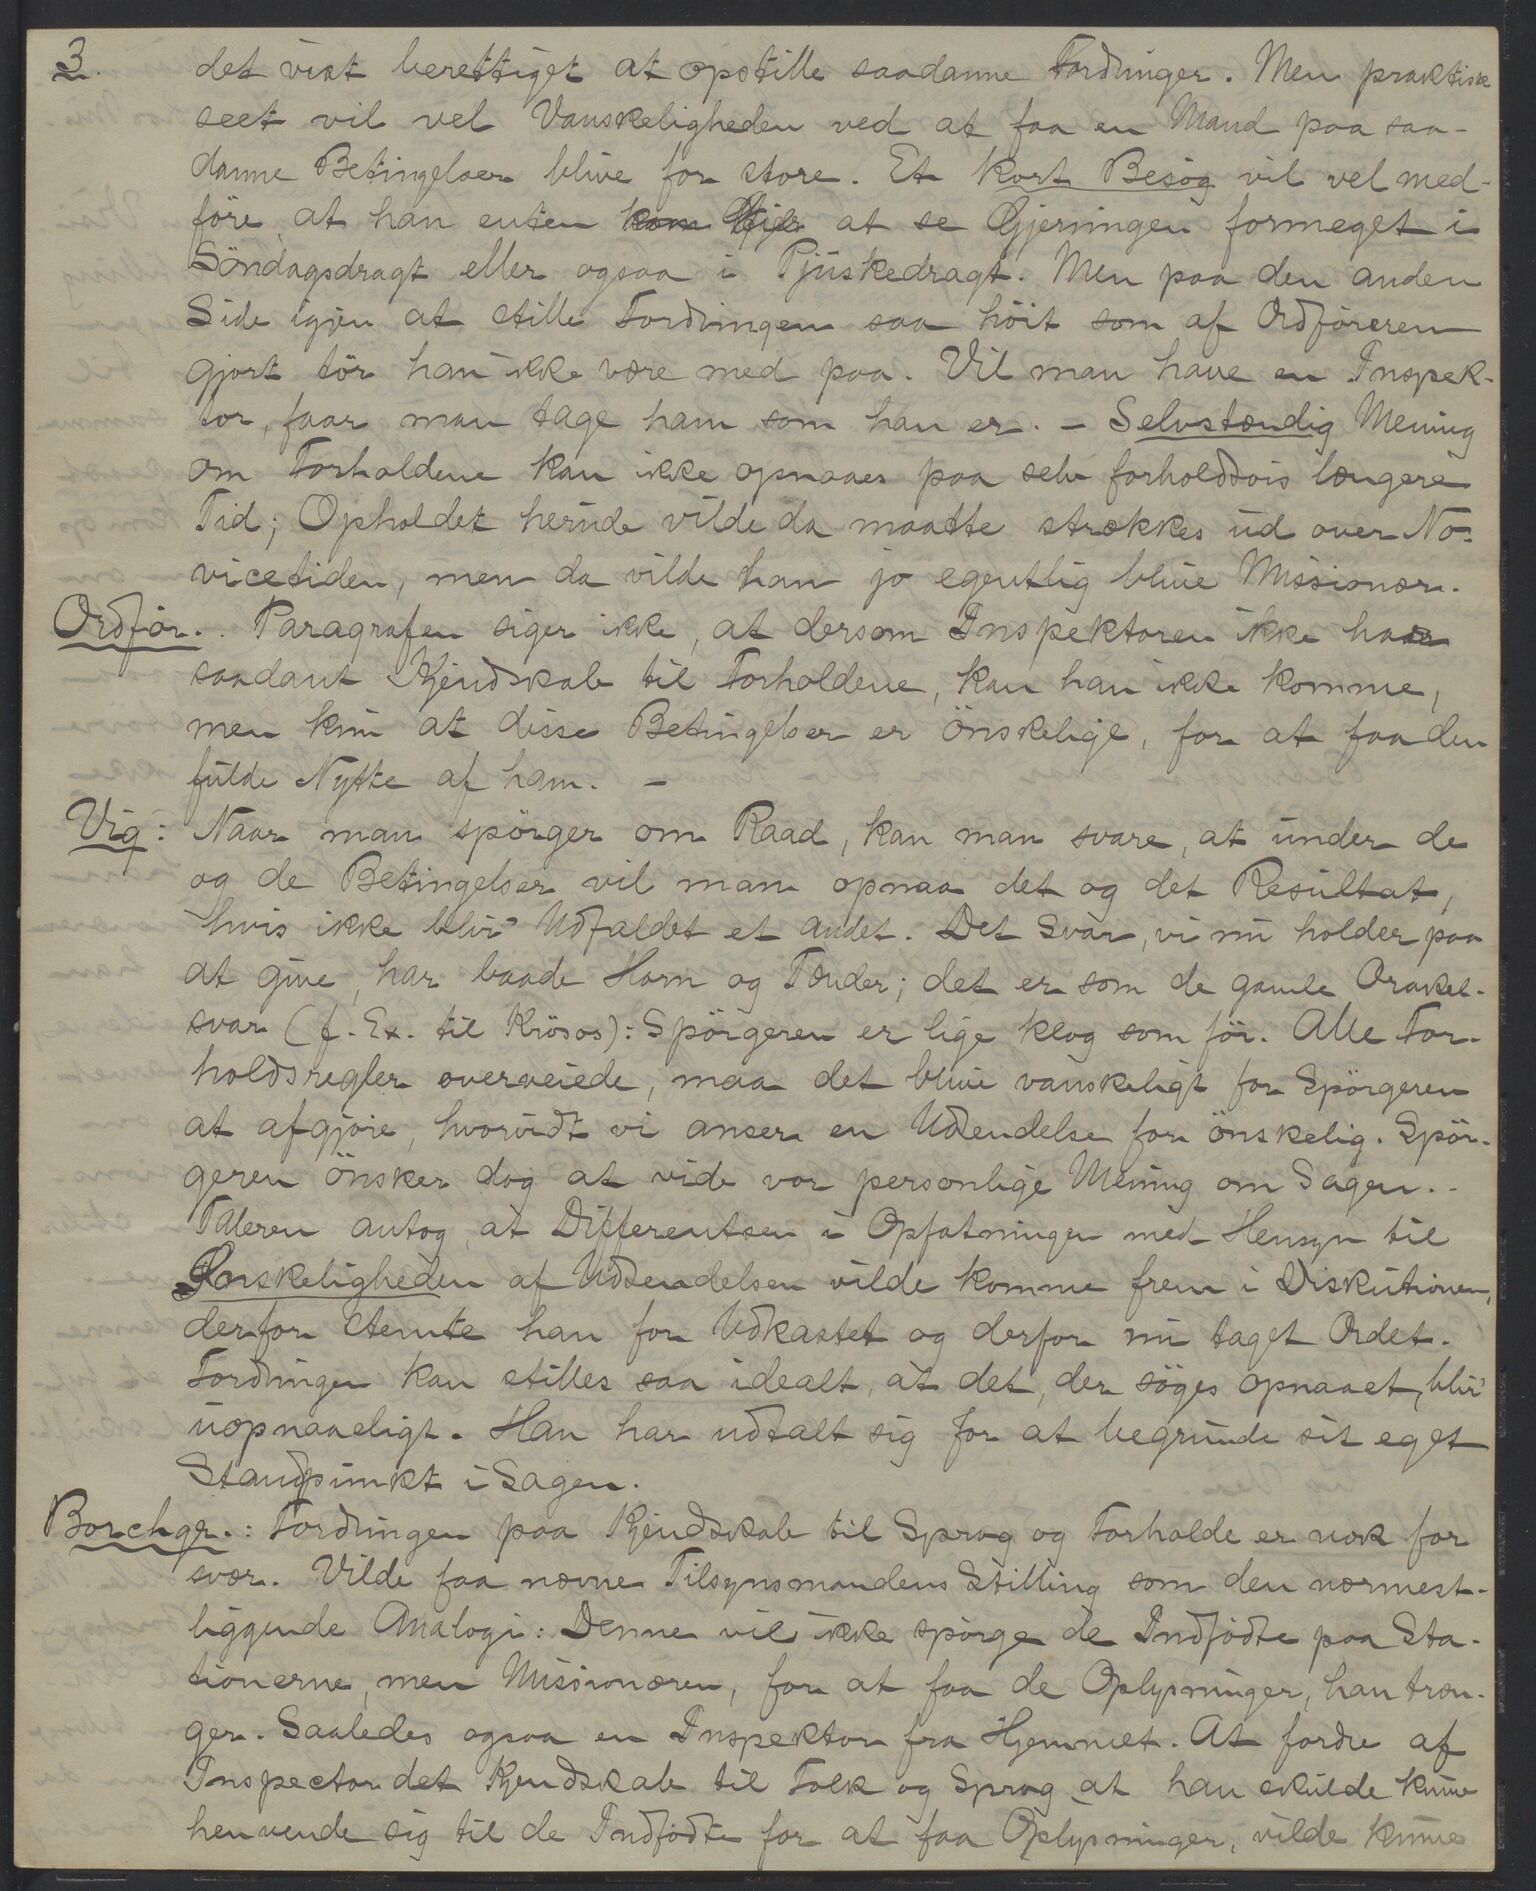 3. det vist berettiget at opstille saadanne Fordringer. Men praktisk
seet vil vel Vanskeligheden ved at faa en Mand paa saa-
danne Betingelser blive for store. Et kort Besög vil vel med-
före, at han enten at se Gjerningen formeget i
Söndagsdragt eller ogsaa i Pjuskedragt. Men paa den anden
Side igjen at stille Fordringen saa höit som af Ordföreren
gjort tör han ikke være med paa. Vil man have en Inspek-
tor, faar man tage ham som han er. - Selvstændig Mening
om Forholdene kan ikke opnaaes paa selv forholdsvis længere
Tid; Opholdet herude vilde da maatte strækkes ud over No-
vicetiden, men da vilde han jo egentlig blive Missionær.
Ordför. Paragrafen siger ikke, at dersom Inspektoren ikke har
saadant Kjendskab til Forholdene, kan han ikke komme,
men kun at disse Betingelser er önskelige, for at faa den
fulde Nytte af ham. -
Vig: Naar man spörger om Raad, kan man svare, at under de
og de Betingelser vil man opnaa det og det Resultat,
hvis ikke bliv' Udfaldet et andet. Det Svar, vi nu holder paa
at give, har baade Horn og Tænder; det er som de gamle Orakel-
svar (f. Ex. til Krösos): Spörgeren er lige klog som för. Alle For-
holdsregler overveiede, maa det blive vanskeligt for Spörgeren
at afgjöre, hvorvidt vi anser en Udsendelse for önskelig. Spör-
geren önsker dog at vide vor personlige Mening om Sagen. -
Taleren antog, at Differentsen i Opfatninger med Hensyn til
Önskeligheden af Udsendelsen vilde komme frem i Diskutionen,
derfor stemte han for Udkastet og derfor nu taget Ordet.
Fordringer kan stilles saa idealt, at det, der söges opnaaet, bliv'
uopnaaeligt. Han har udtalt sig for at begrunde sit eget
Standpunkt i Sagen.
Borchgr.: Fordringen paa Kjendskab til Sprog og Forholde er nok for
svær. Vilde faa nævne Tilsynsmandens Stilling som den nærmest-
liggende Analogi: Denne vil ikke spörge de Indfödte paa Sta-
tionerne, men Missionæren, for at faa de Oplysninger, han træn-
ger. Saaledes ogsaa en Inspektor fra Hjemmet. At fordre af
Inspector det Kjendskab til Folk og Sprog at han skulde kunne
henvende sig til de Indfödte for at faa Oplysninger, vilde kunne